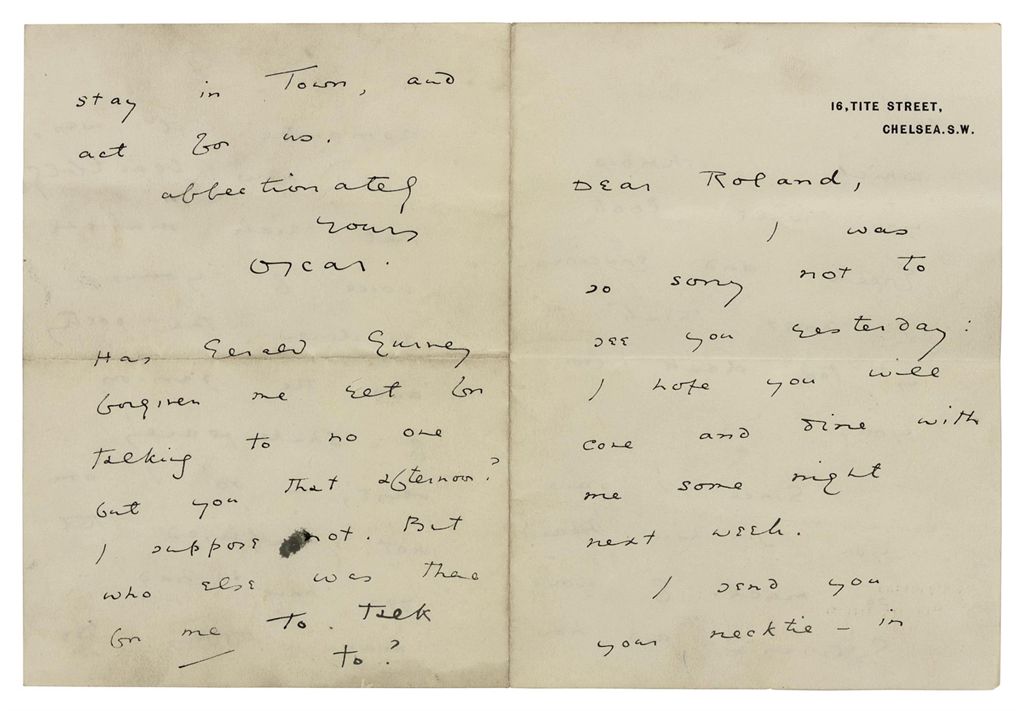 16, TITE STREET,
CHELSEA. S.W.
Dear Roland,
I was
so sorry not to
see you yesterday:
I hope you will
come and dine with
me some night
next week.
I send you
your necktie – in
stay in Town, and
act for us.
affectionately
yours
Oscar.
Has Gerald Gurney
forgiven me yet for
talking to no one
but you that afternoon?
I suppose not. But
who else was there
for me to talk
to?